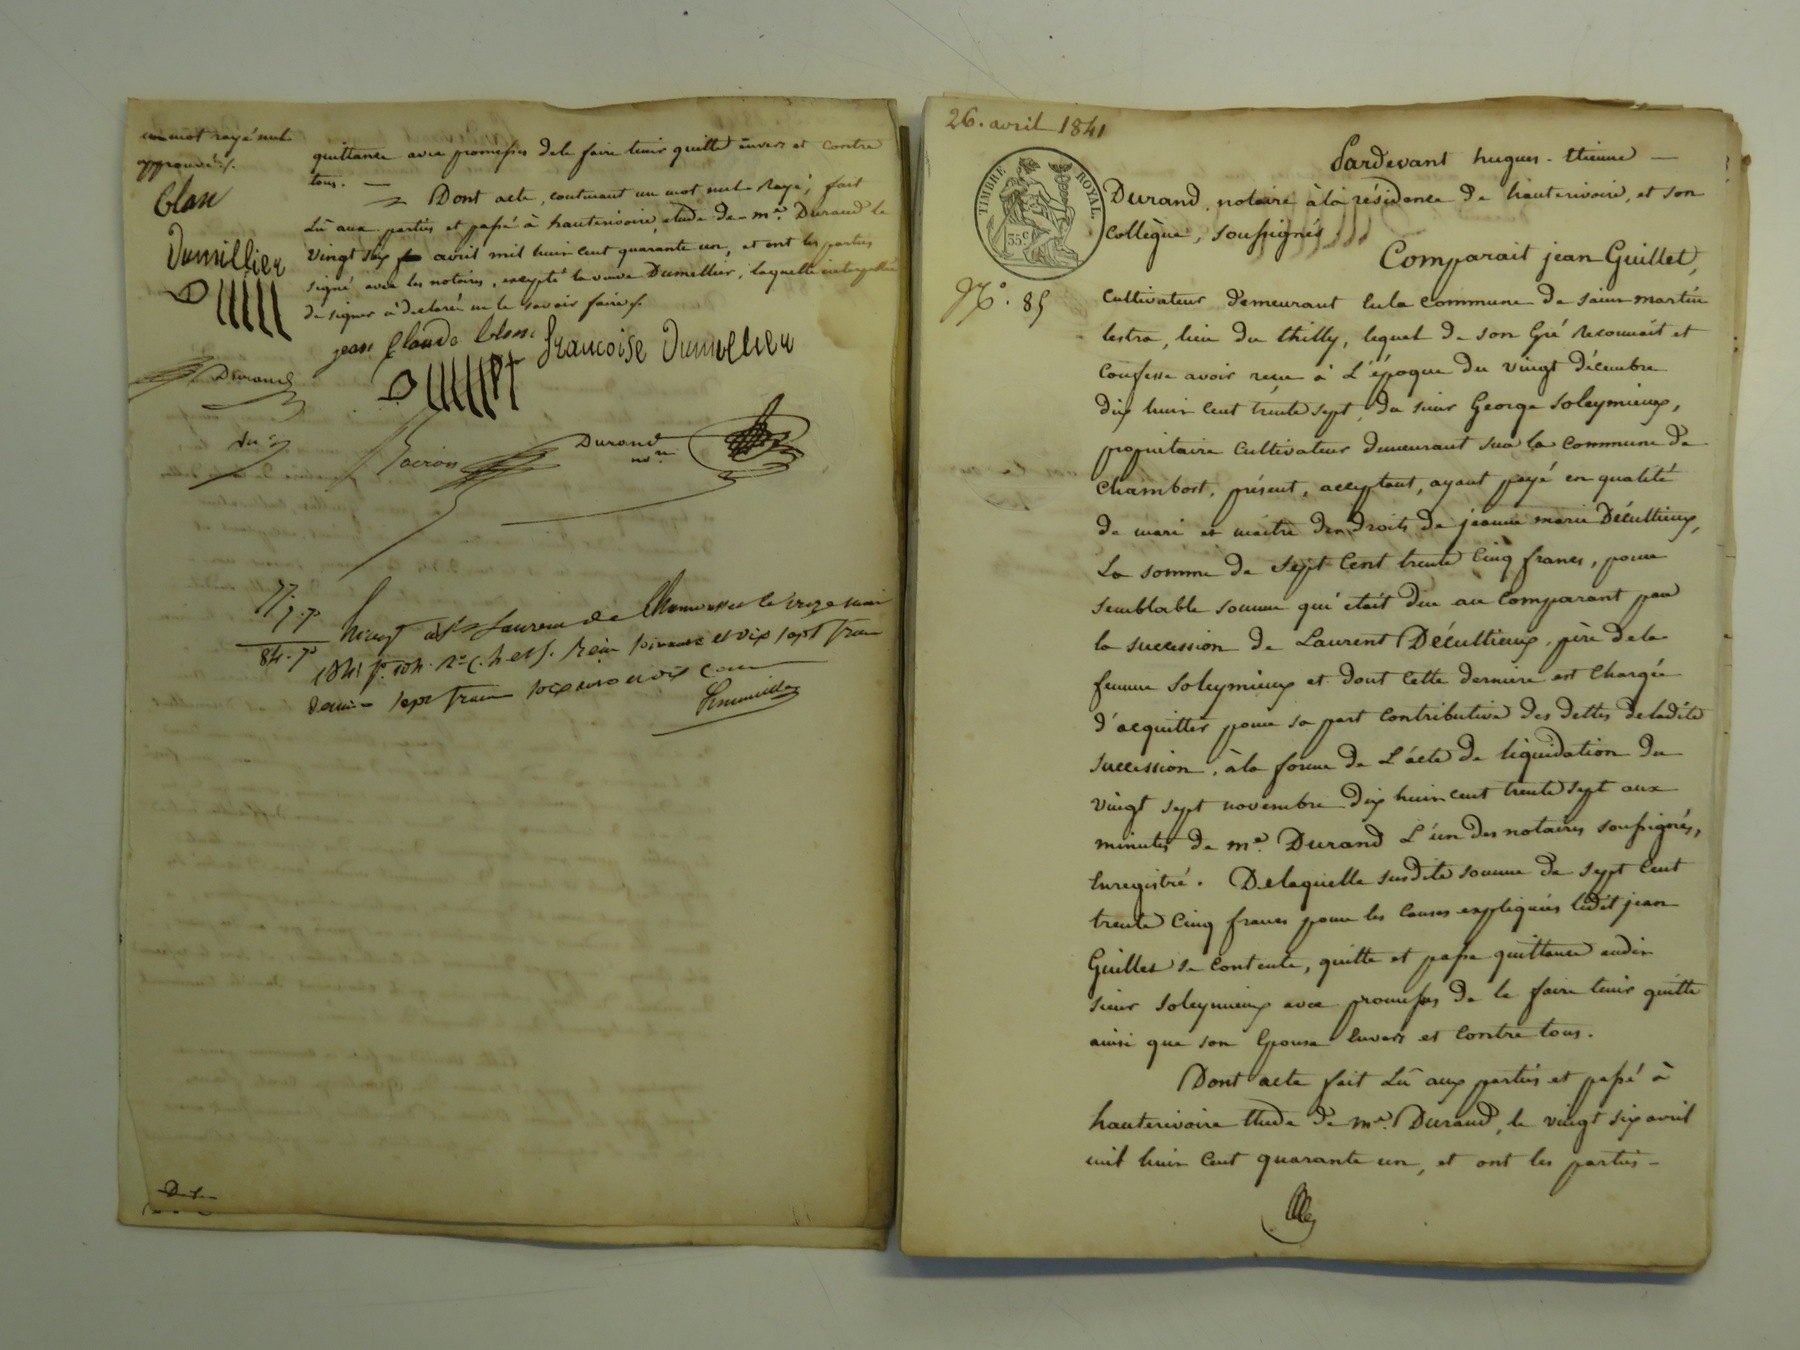 un mot rayé nul
approuvé
Blan
Dumillier
Durand
quittance avec promesses de le faire tenir quitte envers et contre
tous. —
Dont acte, contenant un mot nul rayé, fait
Lû aux parties et passé à hauterivoire, etude de me. Durand le
vingt six avril mil huit cent quarante un, et ont les parties
signé avec les notaires, excepté la veuve Dumillier, laquelle interpellée
de signer a déclaré ne le savoir faire
jean Claude Blan
francoise Dumillier
Durand
nre
84.
à St Laurent de Chamousset le onze mai
1841 fo. 104. Ro. C. Reçu soixante et dix sept francs
decime sept francs soixante et dix
26. avril 1841
TIMBRE ROYAL.
35 c
No. 85
Pardevant hugues-Etienne —
Durand, notaire à la résidence de hauterivoire, et son
Collègue, soussignés
Comparait jean Guillet,
Cultivateur demeurant en la commune de saint martin
lestra, lieu du thilly, lequel de son Gré reconnait et
Confesse avoir reçu à L'époque du vingt décembre
dix huit cent trente sept, du sieur George Soleymieux,
propriétaire Cultivateur demeurant sur la Commune de
Chambost, présent, acceptant, ayant payé en qualité
de mari et maitre des droits de jeanne marie Décultieux,
La somme de sept Cent trente Cinq francs, pour
semblable somme qui était due au Comparant par
la succession de Laurent Décultieux, père de la
femme Soleymieux et dont Cette derniere est Chargée
d'acquitter pour sa part Contributive des dettes de ladite
succession, à la forme de L'acte de liquidation du
vingt sept novembre dix huit cent trente sept aux
minutes de me. Durand L'un des notaires soussignés,
Enregistré. De laquelle susdite somme de sept Cent
trente Cinq francs pour les Causes expliquées ledit jean
Guillet se Contente, quitte et passe quittance audit
sieur Soleymieux avec promesses de le faire tenir quitte
ainsi que son Epouse Envers et Contre tous.
Dont acte fait Lû aux parties et passé à
hauterivoire Etude de me. Durand, le vingt six avril
mil huit Cent quarante un, et ont les parties —